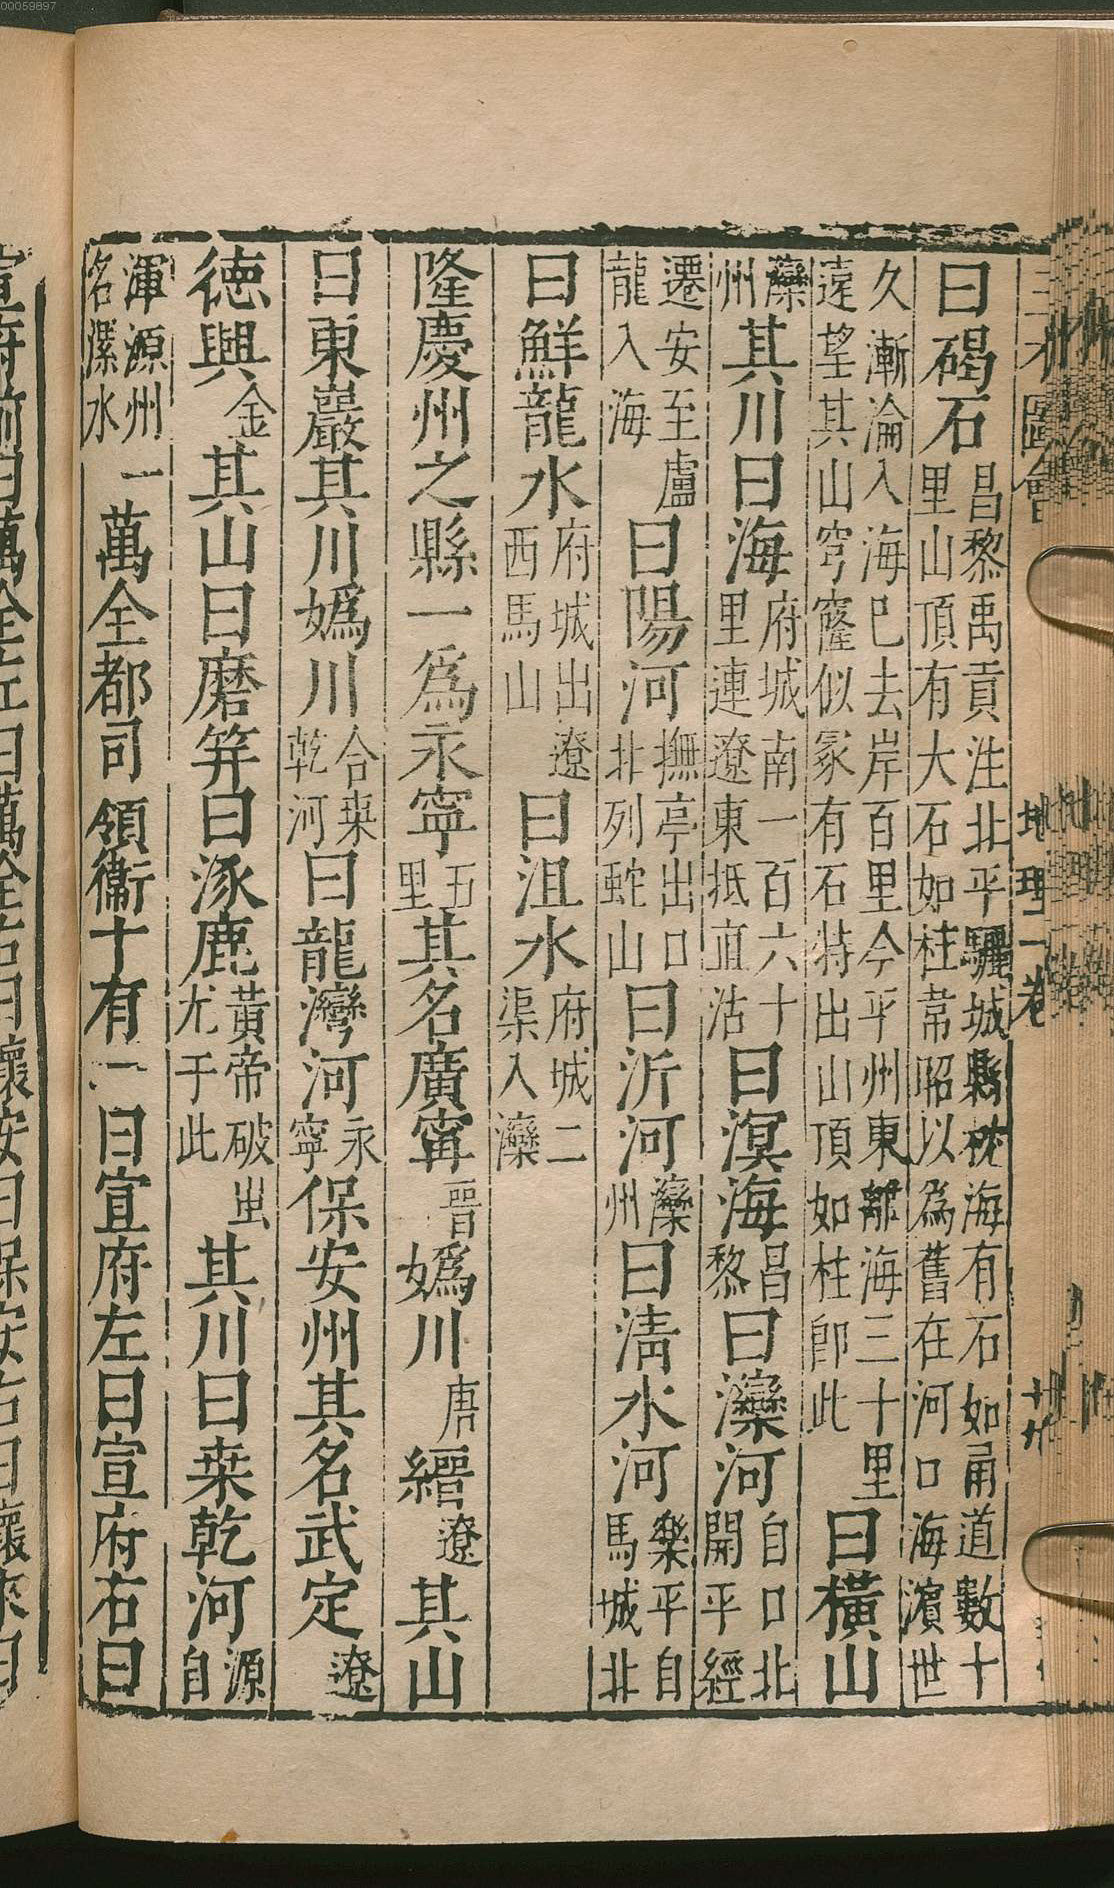 00059897
曰碣石昌黎禹貢注北平驪城縣枕海有石如甬道數十里山頂有大石如柱常昭以為舊在河口海濱世
久漸淪入海巳去岸百里今平州東離海三十里遠望其山穹窿似冢有石特出山頂如柱卽此曰橫山
灤州其川曰海府城南一百六十里連遼東抵直沽曰溟海昌黎曰灤河自口北開平經
遷安至盧龍入海曰陽河撫亭出口北列蛇山曰沂河灤州曰淸水河樂平自馬城北
曰鮮龍水府城出遼西馬山曰沮水府城二渠入灤
隆慶州之縣一為永寧五里其名廣寗晉媯川唐縉遼其山
曰東巖其川媯川合桒乾河曰龍灣河永寧保安州其名武定遼
德興金其山曰磨笄曰涿鹿黃帝破蚩尤于此其川曰桒乾河源自
渾源州名漯水一萬全都司領衞十有一曰宣府左曰宣府右曰
地理一卷
十九